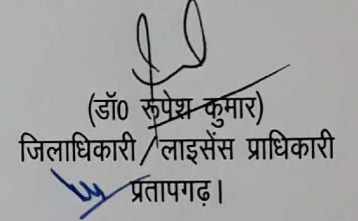 (डॉ0 रूपेश कुमार)
जिलाधिकारी / लाइसेंस प्राधिकारी
प्रतापगढ़।